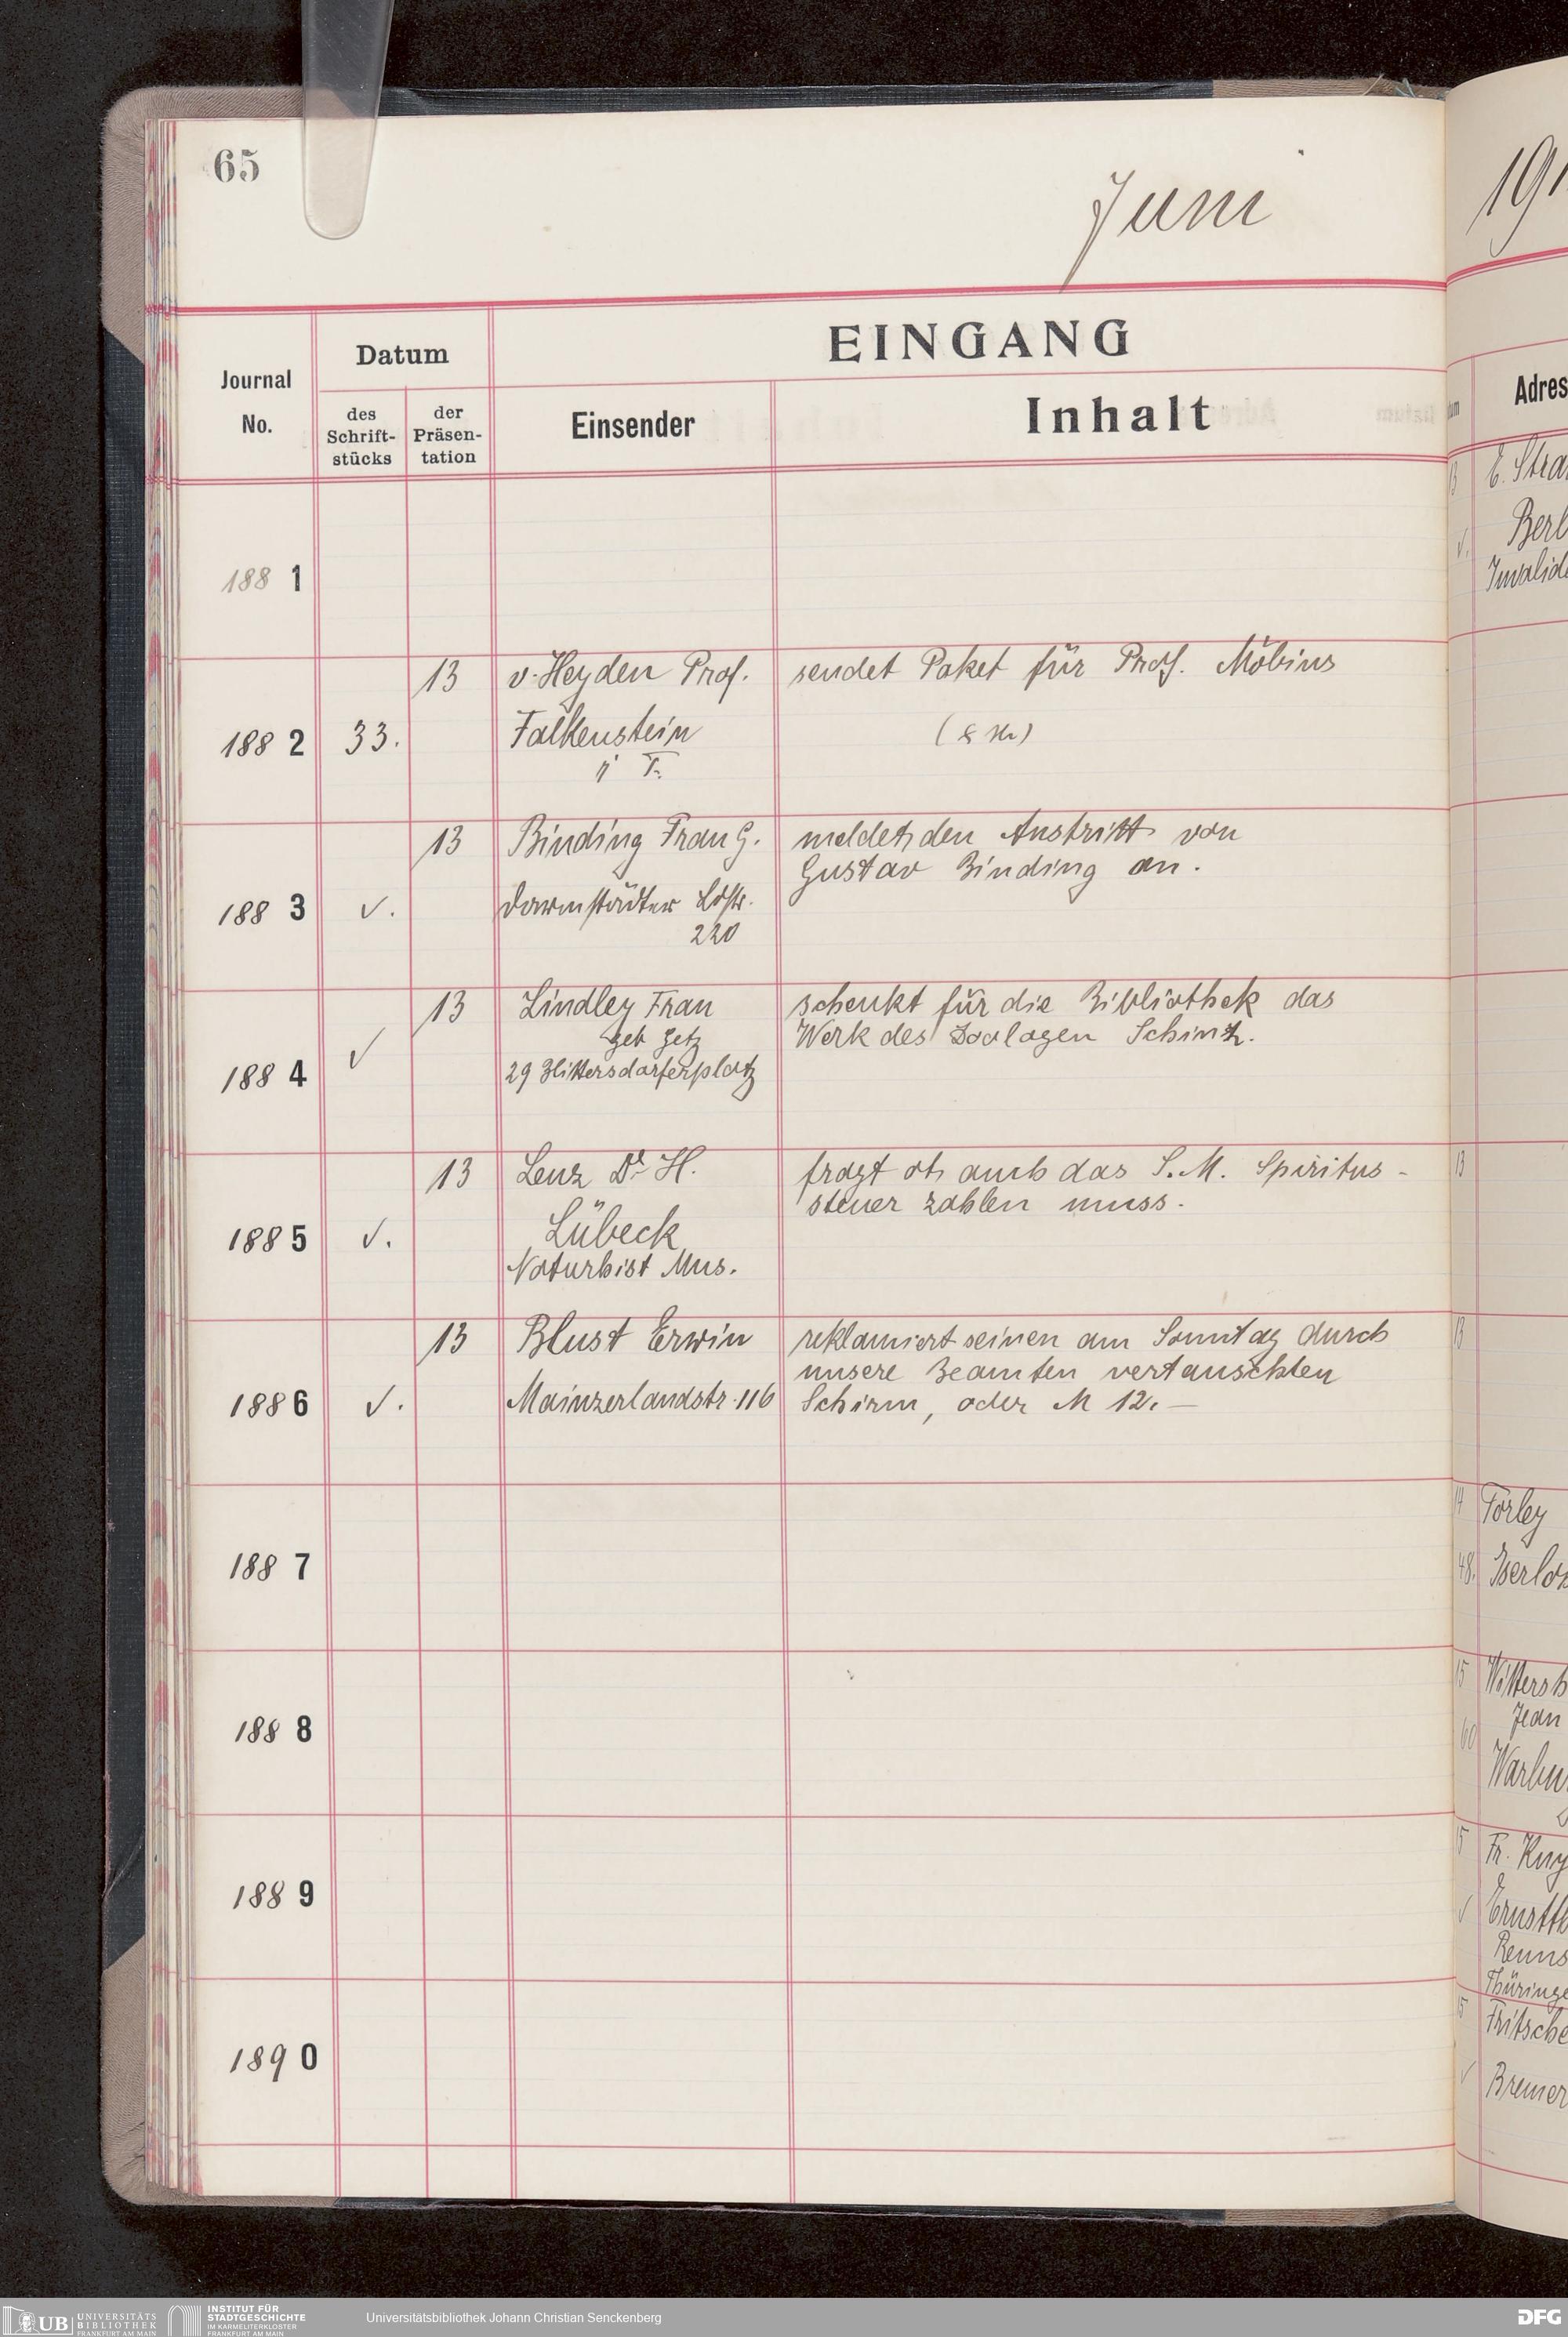 65
Juni
191
EINGANG
Journal
No.
Datum
des
Schrift-
stücks
der
Präsen-
tation
Einsender
Inhalt
Adres
188 1
188 2
33.
13
v. Heyden Prof.
Falkenstein
i T.
sendet Paket für Prof. Möbius
188 3
√.
13
Binding Frau G.
Darmstädter Ldstr.
220
meldet den Austritt von
Gustav Binding an.
188 4
√
13
Lindley Frau
geb Getz
29 Blittersdorferplatz
schenkt für die Bibliothek das
Werk des Zoologen Schinz.
188 5
√.
13
Lenz Dr H.
Lübeck
Naturhist Mus.
fragt ob auch das S. M. Spiritus-
steuer zahlen muss.
188 6
√.
13
Blust Erwin
Mainzerlandstr. 116
reklamiert seinen am Sonntag durch
unsere Beamten vertauschten
Schirm, oder M 12.—
188 7
188 8
188 9
189 0
E. Stra
Berl
Invalide
13
13
14
Torley
48.
Iserlo
15
Wittersh
Jean
60
Warbu
15
Fr. Kny
√
Ernstth
Renns
Thüringe
15
Fritsche
√
Bremer
UB
UNIVERSITÄTS
BIBLIOTHEK
FRANKFURT AM MAIN
INSTITUT FÜR
STADTGESCHICHTE
IM KARMELITERKLOSTER
FRANKFURT AM MAIN
Universitätsbibliothek Johann Christian Senckenberg
DFG